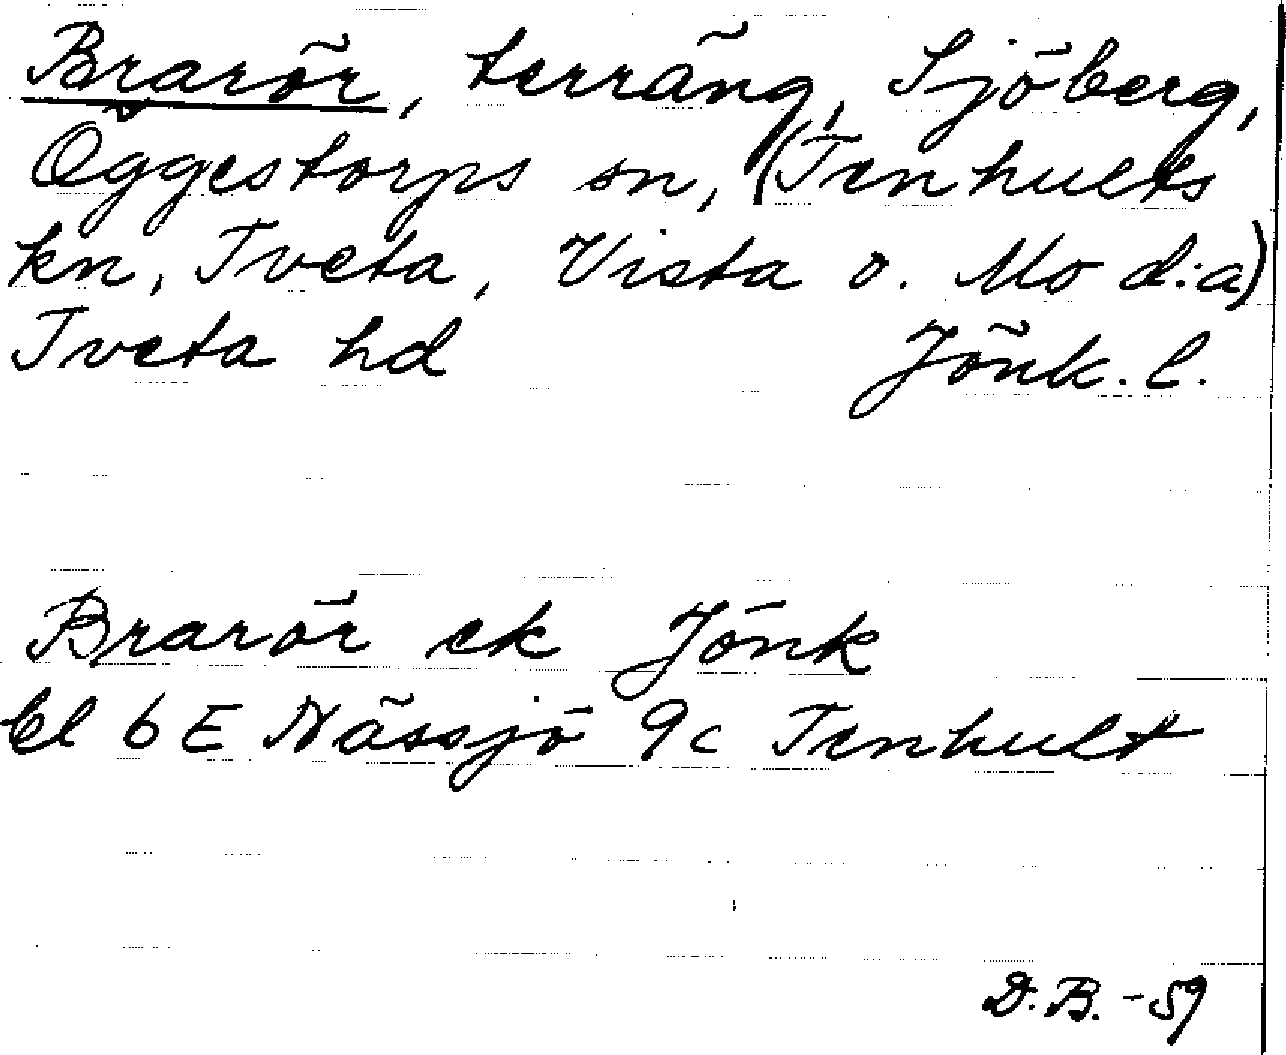 Brarör, terräng, Sjöberg,
Öggestorps sn, (Tenhults
kn, Tveta, Vista o. Mo d:a)
Tveta hd Jönk. l.
Brarör ek Jönk
bl 6E Nässjö 9c Tenhult
D.B. -59